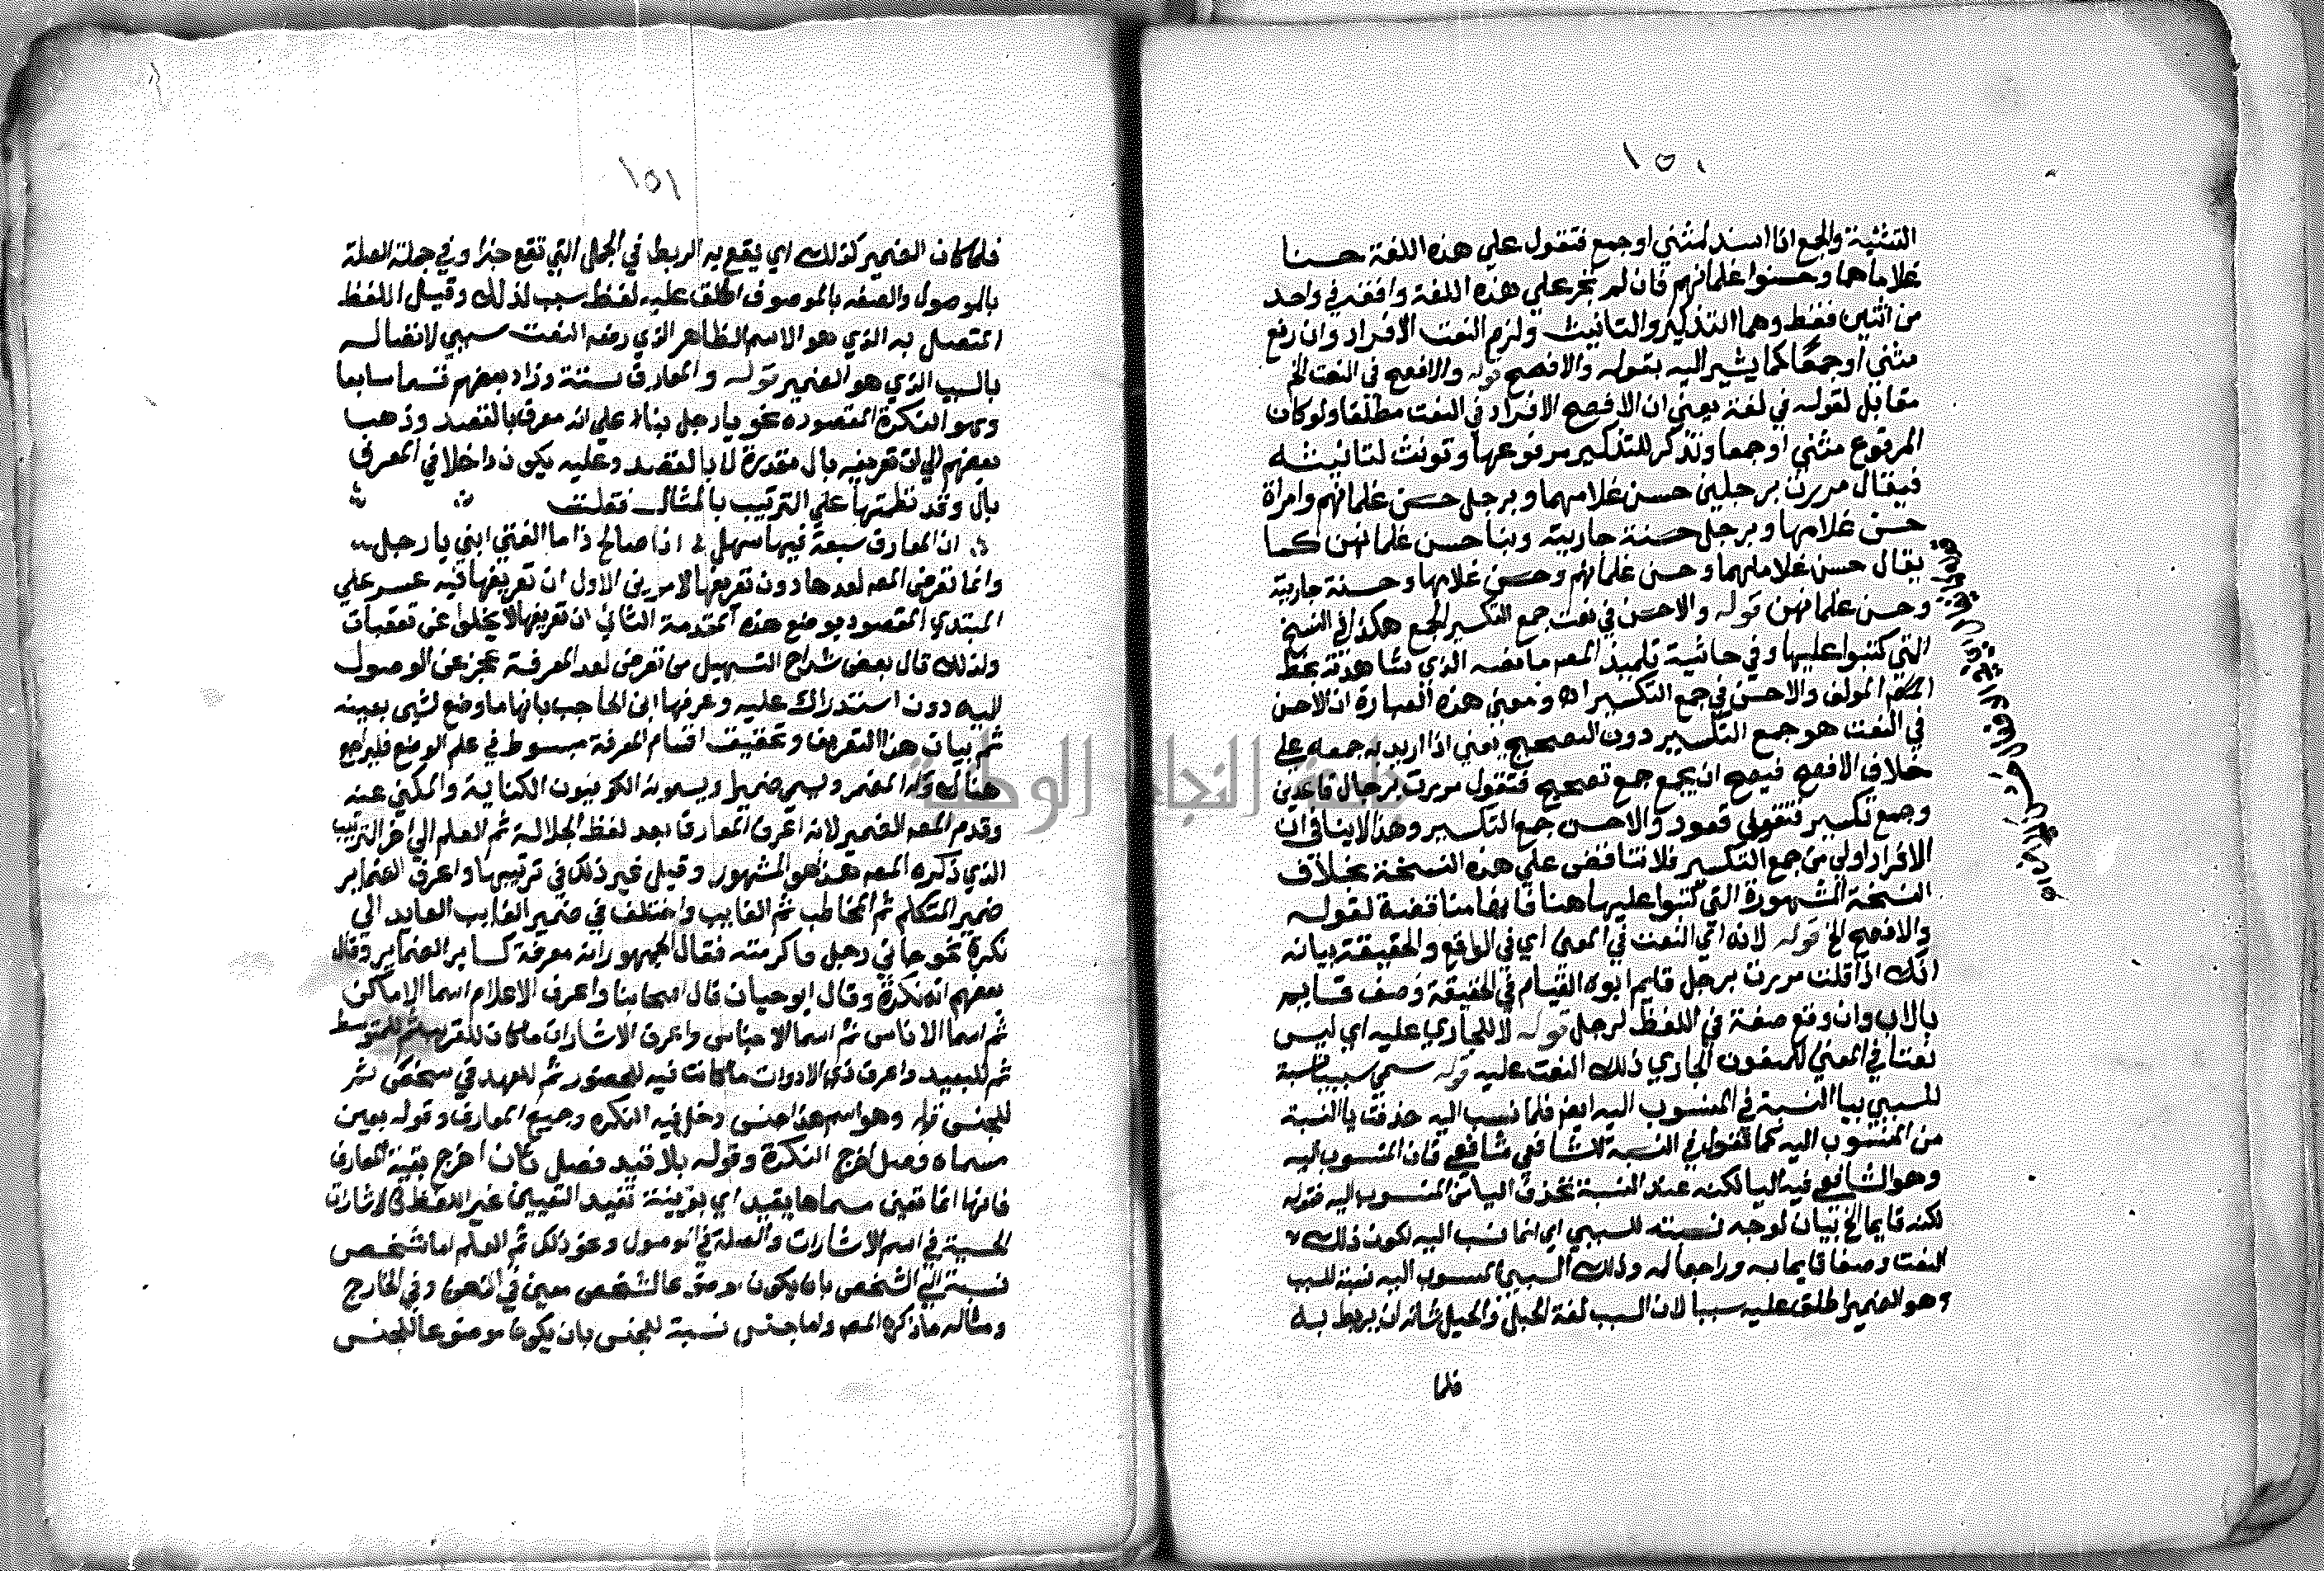 ١٥٠
التثنية والجمع اذا اسند لمثني او جمع فتقول علي هذه اللغة حسنا
غلاماهما وحسنوا غلمانهم فان لم تجر علي هذه اللغة وافقه في واحد
من اثنين فقط وهما التذكير والتانيث ولزم النعت الافراد وان رفع
مثني او جمعا كما يشير اليه بقوله والافصح قوله والافصح في النعت الخ
مقابل لقوله في لغة يعني ان الافصح الافراد في النعت مطلقا ولو كان
المرفوع مثني او جمعا وتذكر للتذكير مرفوعها وتونث لتانيثه
فيقال مررت برجلين حسن غلامهما وبرجل حسن غلمانهم وامراة
حسن غلامها وبرجل حسنة جاريته وبنا حسن غلمانهن كما
يقال حسن غلاماهما وحسن غلمانهم وحسن غلامها وحسنة جاريته
وحسن غلمانهن قوله والاحسن في نعت جمع التكسير الجمع هكذا في النسخ
التي كتبوا عليها وفي حاشية تلميذ المصـ ما نصه الذي شاهدته بخط
المصـ المولف والاحسن في جمع التكسير اه ومعني هذه العبارة ان الاحسن
في النعت هو جمع التكسير دون التصحيح يعني اذا اريد به جمعه علي
خلاف الافصح فيصح ان يجمع جمع تصحيح فتقول مررت برجال قاعدين
وجمع تكسير فتقول قعود والاحسن جمع التكسير وهذا لاينافي ان
الافراد اولي من جمع التكسير فلا تناقض علي هذه النسخة بخلاف
النسخة المشهورة التي كتبوا عليها هنا فانها مناقضة لقوله
والافصح الخ قوله لانه اي النعت في المعني اي في الواقع والحقيقة بيانه
انك اذا قلت مررت برجل قايم ابوه القيام في الحقيقة وصف قايم
بالاب وان وقع صفة في اللفظ لرجل قوله لا للجاري عليه اي ليس
نعتا في المعني للمنعوت الجاري ذلك النعت عليه قوله سمي سببيا نسبة
للسببي بيا النسبة في المنسوب اليه ايضا فلما نسب اليه حذفت يا النسبة
من المنسوب اليه كما تقول في النسبة للشافعي شافعي فان المنسوب اليه
وهو الشافعي فيه اليا لكنه عند النسبة تحذف اليا من المنسوب اليه فقوله
لكنه قايما الخ بيان لوجه نسبته للسببي اي انما نسب اليه لكون ذلك
النعت وصفا قايما به وراجعا له وذلك السببي المنسوب اليه نسبة للسبب
وهو الضمير اطلق عليه سببا لان السبب لغة الحبل والحبل شانه ان يربط به
فلما
١٥١
فلما كان الضمير كذلك اي يقع به الربط في الجمل التي تقع خبرا وفي جملة الصلة
بالموصول والصفه بالموصوف اطلق عليه لفظ سبب لذلك وقيل اللفظ
المتصل به الذي هو الاسم الظاهر الذي رفعه النعت سببي لاتصاله
بالسبب الذي هو الضمير قوله والمعارف ستة وزاد بعضهم قسما سابعا
وهو النكرة المقصوده نحو يا رجل بناء علي انه معرف بالقصد وذهب
بعضهم الي ان تعريفه بال مقدرة لا بالقصد وعليه يكون داخلا في المعرف
بال وقد نظمتها علي الترتيب بالمثال فقلت
ان المعارف سبعة فيها سهل انا صالح ذا ما الفتي ابني يا رجل
وانما تعرض المصـ لعدها دون تعريفها لامرين الاول ان تعريفها فيه عسر علي
المبتدي المقصود بوضع هذه المقدمة الثاني ان تعريفها لا يخلو عن تعقبات
ولذلك قال بعض شراح التسهيل من تعرض لعد المعرفة عجز عن الوصول
اليه دون استدراك عليه وعرفها ابن الحاجب بانها ما وضع لشي بعينه
ثم بيان هذا التعريف وتحقيق اقسام المعرفة مبسوط في علم الوضع فليراجع
هناك قوله المضمر ويسمي ضميرا ويسمونه الكوفيون الكناية والمكني عنه
وقدم المصـ الضمير لانه اعرف المعارف بعد لفظ الجلالة ثم العلم الي اخر الترتيب
الذي ذكره المصـ هذا هو المشهور وقيل غير ذلك في ترتيبها واعرف الضماير
ضمير المتكلم ثم المخاطب ثم الغايب واختلف في ضمير الغايب العايد الي
نكرة نحو جاني رجل فاكرمته فقال الجمهور انه معرفة كساير الضماير وقال
بعضهم انه نكرة وقال ابو حيان قال اصحابنا واعرف الاعلام اسما الاماكن
ثم اسما الاناس ثم اسما الاجناس واعرف الاشارات ما كان للقريب ثم للمتوسط
ثم للبعيد واعرف ذي الادوات ما كانت فيه للحضور ثم للعهد في شخص ثم
للجنس قوله وهو اسم هذا جنس دخل فيه النكره وجميع المعارف وقوله يعين
مسماه فصل اخرج النكرة وقوله بلا قيد فصل ثان اخرج بقية المعارف
فانها انما تعين مسماها بقيد اي بقرينة تفيد التعيين غير اللفظ كالاشارات
الحسية في اسم الاشارات والصلة في الموصول ونحو ذلك ثم العلم اما شخص
نسبة الي الشخص بان يكون موضوعا لشخص معين في الذهن وفي الخارج
ومثاله ما ذكره المصـ واما جنس نسبة للجنس بان يكون موضوعا للجنس